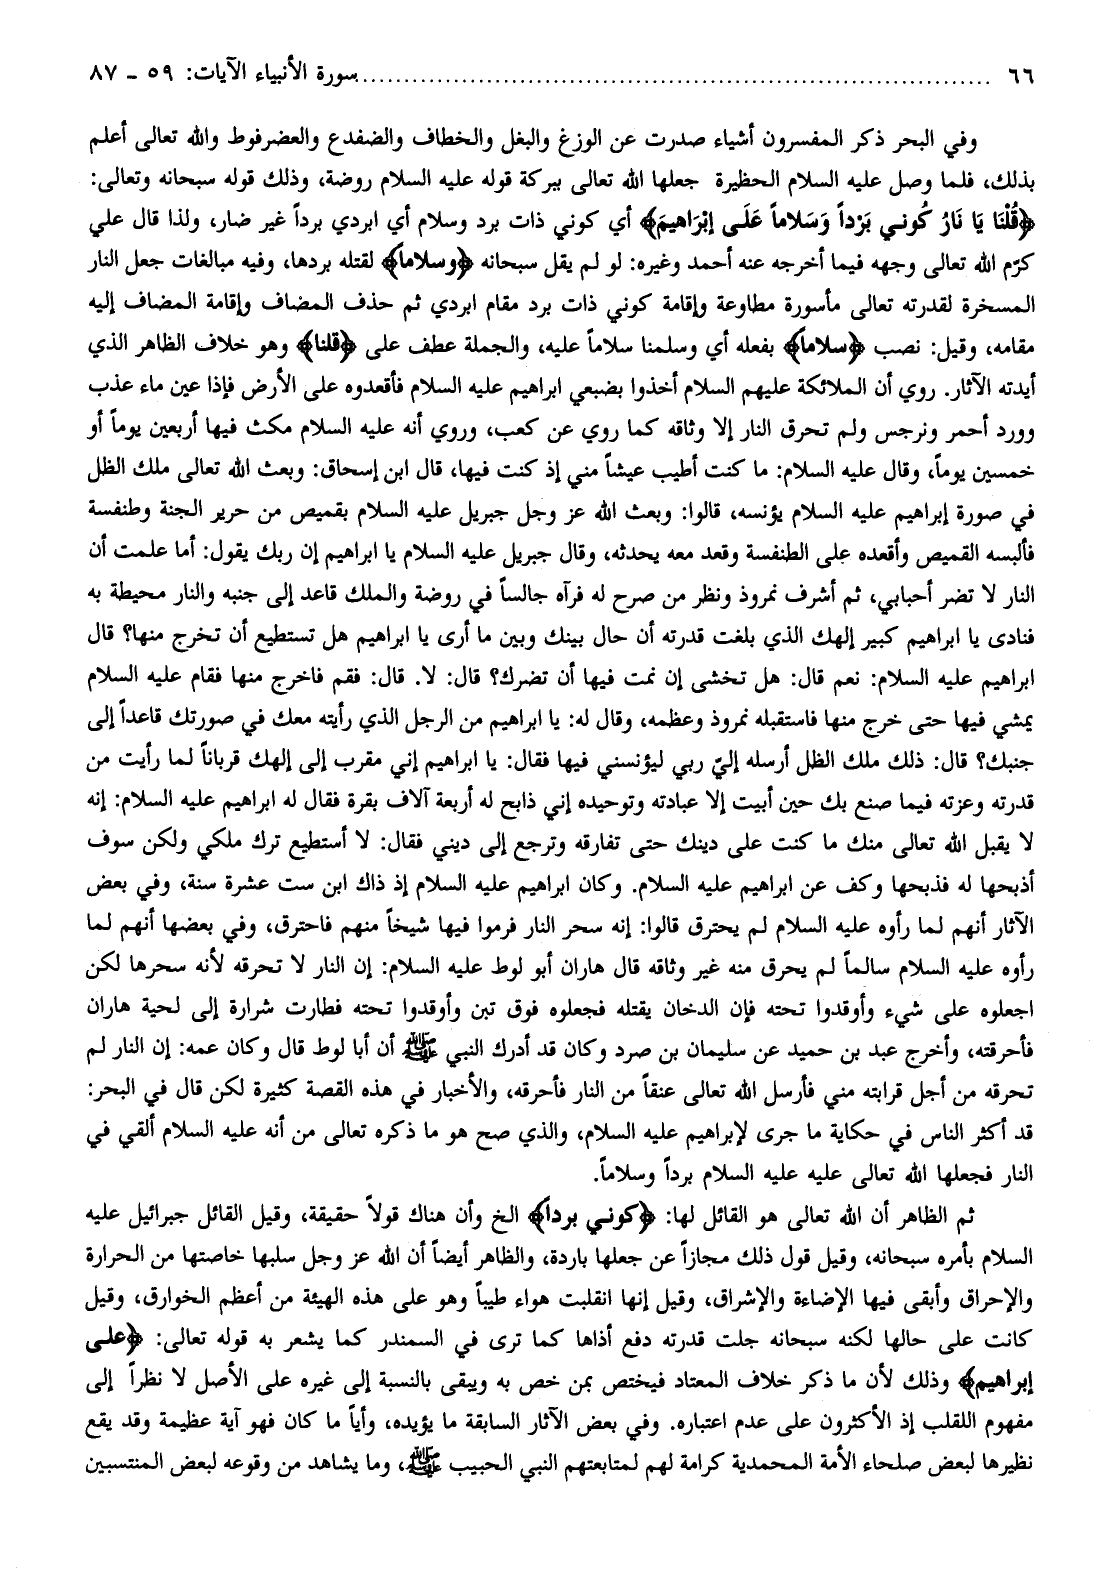 ٦٦ ........................................ سورة الأنبياء الآيات: ٥٩ ـ ٨٧
وفي البحر ذكر المفسرون أشياء صدرت عن الوزغ والبغل والخطاف والضفدع والعضرفوط والله تعالى أعلم
بذلك، فلما وصل عليه السلام الحظيرة جعلها الله تعالى ببركة قوله عليه السلام روضة، وذلك قوله سبحانه وتعالى:
﴿قُلْنَا يَا نَارُ كُونِي بَرْداً وَسَلاماً عَلَى إِبْرَاهِيمَ﴾ أي كوني ذات برد وسلام أي ابردي برداً غير ضار، ولذا قال علي
كرّم الله تعالى وجهه فيما أخرجه عنه أحمد وغيره: لو لم يقل سبحانه ﴿وسلاماً﴾ لقتله بردها، وفيه مبالغات جعل النار
المسخرة لقدرته تعالى مأسورة مطاوعة وإقامة كوني ذات برد مقام ابردي ثم حذف المضاف وإقامة المضاف إليه
مقامه، وقيل: نصب ﴿سلاماً﴾ بفعله أي وسلمنا سلاماً عليه، والجملة عطف على ﴿قلنا﴾ وهو خلاف الظاهر الذي
أيدته الآثار. روي أن الملائكة عليهم السلام أخذوا بضبعي ابراهيم عليه السلام فأقعدوه على الأرض فإذا عين ماء عذب
وورد أحمر ونرجس ولم تحرق النار إلا وثاقه كما روي عن كعب، وروي أنه عليه السلام مكث فيها أربعين يوماً أو
خمسين يوماً، وقال عليه السلام: ما كنت أطيب عيشاً مني إذ كنت فيها، قال ابن إسحاق: وبعث الله تعالى ملك الظل
في صورة إبراهيم عليه السلام يؤنسه، قالوا: وبعث الله عز وجل جبريل عليه السلام بقميص من حرير الجنة وطنفسة
فألبسه القميص وأقعده على الطنفسة وقعد معه يحدثه، وقال جبريل عليه السلام يا ابراهيم إن ربك يقول: أما علمت أن
النار لا تضر أحبابي، ثم أشرف نمروذ ونظر من صرح له فرآه جالساً في روضة والملك قاعد إلى جنبه والنار محيطة به
فنادى يا ابراهيم كبير إلهك الذي بلغت قدرته أن حال بينك وبين ما أرى يا ابراهيم هل تستطيع أن تخرج منها؟ قال
ابراهيم عليه السلام: نعم قال: هل تخشى إن نمت فيها أن تضرك؟ قال: لا. قال: فقم فاخرج منها فقام عليه السلام
يمشي فيها حتى خرج منها فاستقبله نمروذ وعظمه، وقال له: يا ابراهيم من الرجل الذي رأيته معك في صورتك قاعداً إلى
جنبك؟ قال: ذلك ملك الظل أرسله إليّ ربي ليؤنسني فيها فقال: يا ابراهيم إني مقرب إلى إلهك قرباناً لما رأيت من
قدرته وعزته فيما صنع بك حين أبيت إلا عبادته وتوحيده إني ذابح له أربعة آلاف بقرة فقال له ابراهيم عليه السلام: إنه
لا يقبل الله تعالى منك ما كنت على دينك حتى تفارقه وترجع إلى ديني فقال: لا أستطيع ترك ملكي ولكن سوف
أذبحها له فذبحها وكف عن ابراهيم عليه السلام. وكان ابراهيم عليه السلام إذ ذاك ابن ست عشرة سنة، وفي بعض
الآثار أنهم لما رأوه عليه السلام لم يحترق قالوا: إنه سحر النار فرموا فيها شيخاً منهم فاحترق، وفي بعضها أنهم لما
رأوه عليه السلام سالماً لم يحرق منه غير وثاقه قال هاران أبو لوط عليه السلام: إن النار لا تحرقه لأنه سحرها لكن
اجعلوه على شيء وأوقدوا تحته فإن الدخان يقتله فجعلوه فوق تبن وأوقدوا تحته فطارت شرارة إلى لحية هاران
فأحرقته، وأخرج عبد بن حميد عن سليمان بن صرد وكان قد أدرك النبي ﷺ أن أبا لوط قال وكان عمه: إن النار لم
تحرقه من أجل قرابته مني فأرسل الله تعالى عنقاً من النار فأحرقه، والأخبار في هذه القصة كثيرة لكن قال في البحر:
قد أكثر الناس في حكاية ما جرى لإبراهيم عليه السلام، والذي صح هو ما ذكره تعالى من أنه عليه السلام ألقي في
النار فجعلها الله تعالى عليه عليه السلام برداً وسلاماً.
ثم الظاهر أن الله تعالى هو القائل لها: ﴿كوني برداً﴾ الخ وأن هناك قولاً حقيقة، وقيل القائل جبرائيل عليه
السلام بأمره سبحانه، وقيل قول ذلك مجازاً عن جعلها باردة، والظاهر أيضاً أن الله عز وجل سلبها خاصتها من الحرارة
والإحراق وأبقى فيها الإضاءة والإشراق، وقيل إنها انقلبت هواء طيباً وهو على هذه الهيئة من أعظم الخوارق، وقيل
كانت على حالها لكنه سبحانه جلت قدرته دفع أذاها كما ترى في السمندر كما يشعر به قوله تعالى: ﴿على
إبراهيم﴾ وذلك لأن ما ذكر خلاف المعتاد فيختص بمن خص به ويبقى بالنسبة إلى غيره على الأصل لا نظراً إلى
مفهوم اللقلب إذ الأكثرون على عدم اعتباره. وفي بعض الآثار السابقة ما يؤيده، وأياً ما كان فهو آية عظيمة وقد يقع
نظيرها لبعض صلحاء الأمة المحمدية كرامة لهم لمتابعتهم النبي الحبيب ﷺ، وما يشاهد من وقوعه لبعض المنتسبين